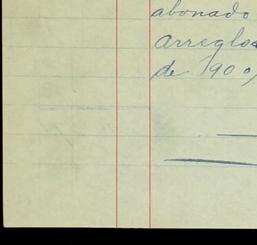 abonado
arreglos
de 190